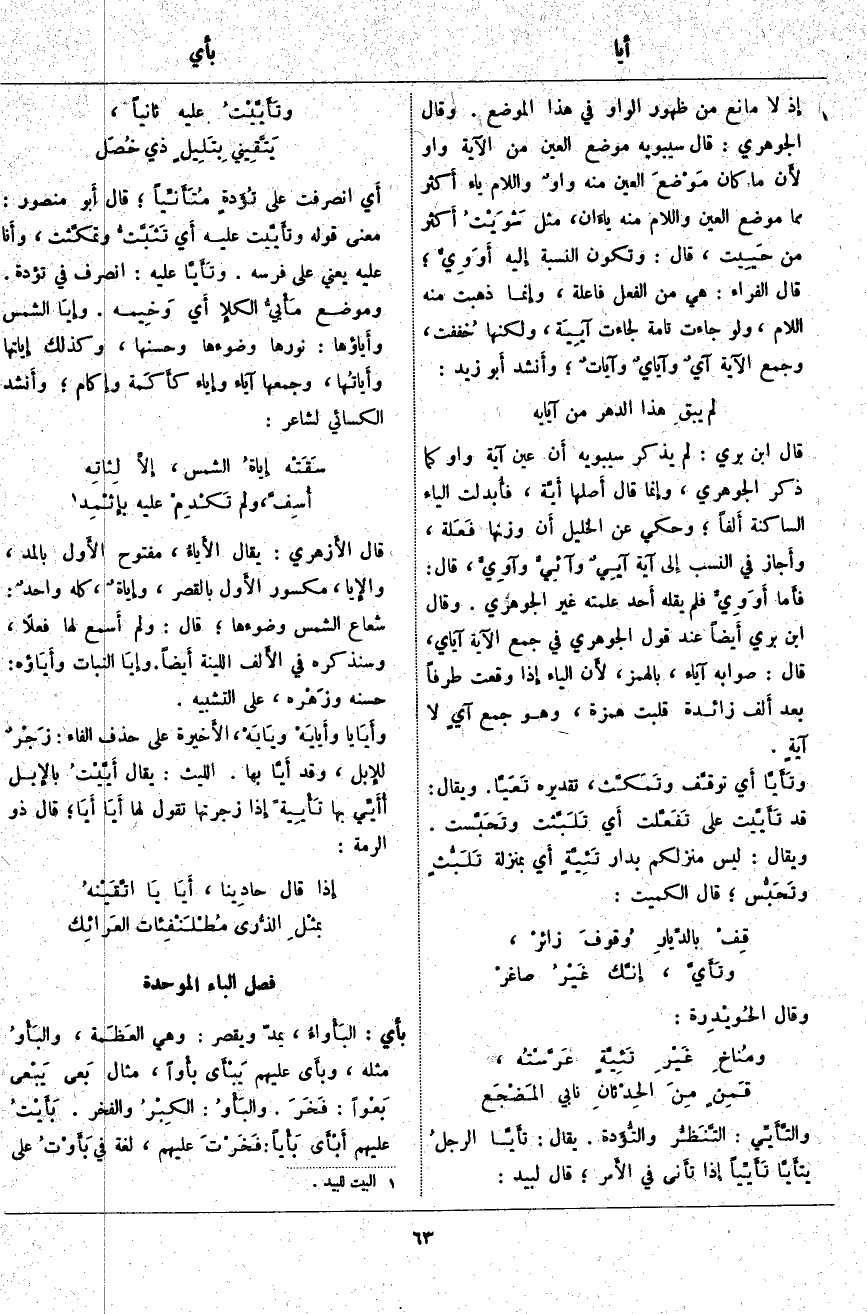 أيا
بأي
إذ لا مانع من ظهور الواو في هذا الموضع . وقال
الجوهري : قال سيبويه موضع العين من الآية واو
لأن ما كان مَوْضعَ العين منه واوٌ واللام ياء أكثر
مما موضع العين واللام منه ياءَان، مثل شَوَيْتُ أكثر
من حَيِيت ، قال : وتكون النسبة إليه أَوَوِيٌّ ؛
قال الفراء : هي من الفعل فاعلة ، وإنما ذهبت منه
اللام ، ولو جاءت تامة لجاءت آيِيَة ، ولكنها خُففت،
وجمع الآية آيٌ وآيايٌ وآياتٌ ؛ وأنشد أبو زيد :
لم يبقِ هذا الدهر من آيايه
قال ابن بري : لم يذكر سيبويه أن عين آية واو كما
ذكر الجوهري ، وإنما قال أصلها أيّة ، فأبدلت الياء
الساكنة ألفاً ؛ وحكي عن الخليل أن وزنها فَعَلة ،
وأجاز في النسب إلى آية آيِيٌ وآئِيٌّ وآوِيٌّ ، قال:
فأما أَوَوِيٌّ فلم يقله أحد علمته غير الجوهري . وقال
ابن بري أيضاً عند قول الجوهري في جمع الآية آياي،
قال : صوابه آياء ، بالهمز، لأن الياء إذا وقعت طرفاً
بعد ألف زائدة قلبت همزة ، وهو جمع آيٍ لا
آيةٍ .
وتَأَيَّا أي توقَّف وتَمَكَّث، تقديره تَعَيَّا. ويقال:
قد تَأَيَّيت على تَفَعَّلت أي تَلَبَّثت وتَحَبَّست .
ويقال : ليس منزلكم بدار تَئِيَّةٍ أي بمنزلة تَلَبُّثٍ
وتَحَبُّس ؛ قال الكميت :
قِفْ بالدِّيارِ وُقوفَ زائرْ ،
وتَأَيَّ ، إنَّك غَيْرُ صاغرْ
وقال الحُويْدِرة :
ومُناخِ غَيْرِ تَئِيَّةٍ عَرَّسْتُه ،
قَمِنٍ مِنَ الحِدْثانِ نابي المَضْجَع
والتَّأَيِّي : التَّنَظُّر والتُّؤَدة . يقال: تأَيَّا الرجلُ
يتأَيَّا تَأَيِّياً إذا تأنى في الأمر ؛ قال لبيد :
وتَأَيَّيْتُ عليه ثانياً ،
يَتَّقِيني بِتَلِيلٍ ذي خُصَل
أي انصرفت على تُؤَدةٍ مُتَأَنِّياً ؛ قال أبو منصور :
معنى قوله وتأيَّيت عليه أي تَثَبَّتُّ وتمكَّثت ، وأنا
عليه يعني على فرسه . وتَأَيَّا عليه : انصرف في تؤدة.
وموضع مَأْبيُّ الكلإِ أي وَخِيمه . وإيَا الشمس
وأَياؤها : نورها وضوءها وحسنها ، وكذلك إياتها
وأَياتُها ، وجمعها آياء وإياء كأَكَمة وإكام ؛ وأنشد
الكسائي لشاعر :
سَقَتْه إياةُ الشمس ، إلاَّ لِثاتِه
أُسِفَّ ،ولم تَكْدِمْ عليه بإثْمِدِ١
قال الأزهري : يقال الأَياءُ ، مفتوح الأَول بالمد ،
والإيا ، مكسور الأَول بالقصر ، وإياةٌ ، كله واحدٌ :
شعاع الشمس وضوءها ؛ قال : ولم أسمع لها فعلًا ،
وسنذكره في الألف اللينة أيضاً.وإيَا النبات وأَيَاؤه:
حسنه وزَهْره ، على التشبيه .
وأَيَايا وأَيايَهْ ويَايَهْ، الأخيرة على حذف الفاء : زَجْرٌ
للإبل ، وقد أَيَّا بها . الليث : يقال أَيَّيْتُ بالإبل
أُأَيِّي بها تَأْيِيةً إذا زجرتها تقول لها أَيَا أَيَا؛ قال ذو
الرمة :
إذا قال حادِينا ، أَيَا يَا اتَّقَيْنهُ
بمثْلِ الذُّرى مُطْلَنْفِئات العَرائِك
فصل الباء الموحدة
بأي : البَأْواءُ ، يمدّ ويقصر : وهي العَظَمة ، والبَأْوُ
مثله ، وبأى عليهم يَبْأَى بَأْواً ، مثال بَعى يَبْعى
بَعْواً : فَخَرَ . والبَأْوُ : الكِبْرُ والفخر . بَأَيْتُ
عليهم أَبْأَى بَأْياً: فَخَرْتَ عليهم ، لغة في بَأَوْتُ على
١ البيت للبيد .
٦٣